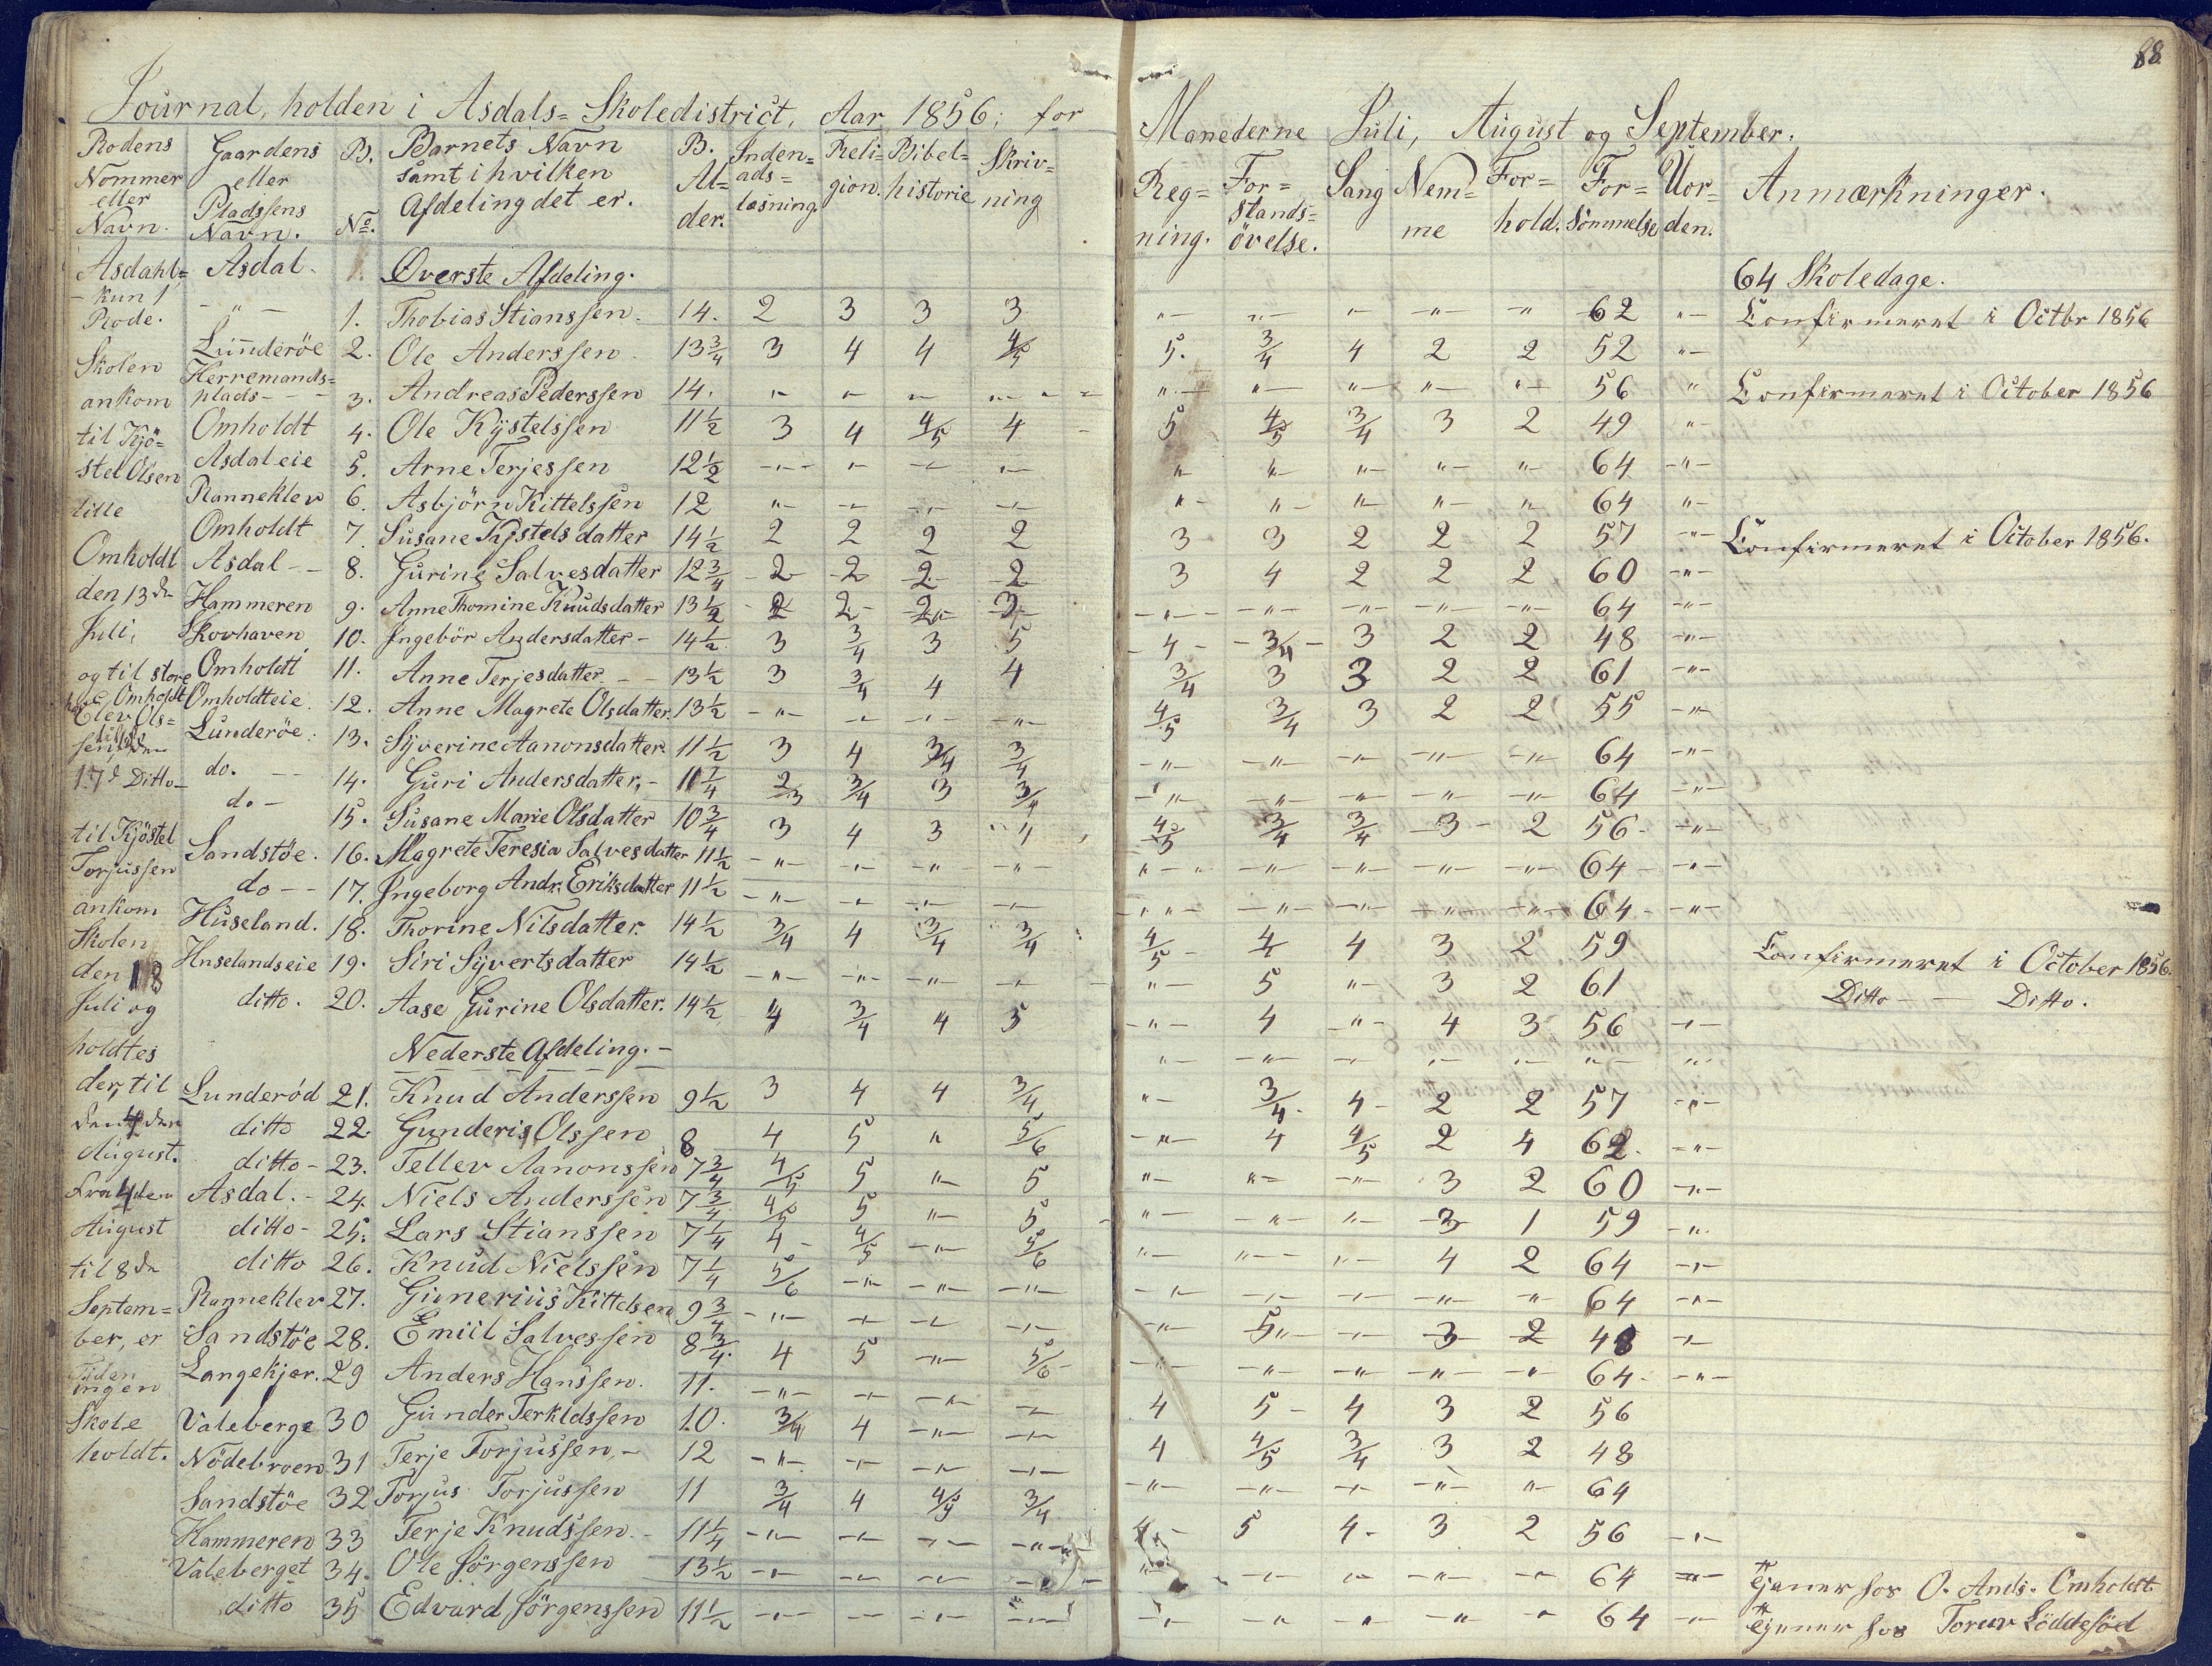 88
Journal, holden i Asdals= Skoledistrict, Aar 1856; for Manederne Juli, August og September.
Rodens Nommer eller Navn. Gaardens eller Pladssens Navn. B. No. Barnets Navn samt i hvilken Afdeling det er. B. Al=der. Inden=ads=læsning. Reli=gion. Bibel=historie Skriv=ning Reg=ning. For=stands=övelse. Sang Nem=me For=hold. For=sömmelse Uor=den. Anmærkninger.
Asdahl= Asdal. 1. Överste Afdeling. 64 Skoledage.
kun 1 Rode. " 1. Thobias Stianssen. 14. 2 3 3 3 " " " " " 62 " Confirmeret i Octbr 1856
Lunderöe 2. Ole Anderssen. 13 3/4 3 4 4 4/5 5. 3/4 4 2 2 52 "
Skolen Herremands=plads 3. Andreas Pederssen 14. " " " " " " " " " 56 " Confirmeret i October 1856
ankom Omholdt 4. Ole Kjstelssen 11 1/2 3 4 4/5 4 5 4/5 3/4 3 2 49 "
til Kjö= Asdaleie 5. Arne Terjessen 12 1/2 " " " " " " " " " 64 "
stel Olsen Ranneklev 6. Asbjörn Kittelssen 12 " " " " " " " " " 64 "
lille Omholdt 7. Susane Kjstelsdatter 14 1/2 2 2 2 2 3 3 2 2 2 57 " Confirmeret i October 1856.
Omholdt Asdal 8. Gurine Salvesdatter 12 3/4 2 2 2 2 3 4 2 2 2 60 "
den 13de Hammeren 9. Anne Thomine Knudsdatter 13 1/2 2 2 2 3 " " " " " 64 "
Juli, Skovhaven 10. Ingebör Andersdatter 14 1/2 3 3/4 3 5 4 3/4 3 2 2 48 "
og til store Omholdt 11. Anne Terjesdatter 13 1/2 3 3/4 4 4 3/4 3 3 2 2 61 "
Omholdt Omholdteie. 12. Anne Magrete Olsdatter. 13 1/2 " " " " 4/5 3/4 3 2 2 55 "
Elev Ols=sen, Lunderöe. 13. Syverine Aanonsdatter. 11 1/2 3 4 3/4 3/4 " " " " " 64 "
17d Ditto do. 14. Guri Andersdatter, 11 1/4 2/3 3/4 3 3/4 " " " " " 64 "
do 15. Susane Marie Olsdatter 10 3/4 3 4 3 4 4/5 3/4 3/4 3 2 56 "
til Kjöstel Sandstöe. 16. Magrete Teresia Salvesdatter 11 1/2 " " " " " " " " " 64 "
Torjussen do 17. Ingeborg Andr. Eriksdatter 11 1/2 " " " " " " " " " 64 "
ankom Huseland. 18. Thorine Nilsdatter 14 1/2 3/4 4 3/4 3/4 4/5 4 4 3 2 59
Skolen Huselandseie 19. Siri Syvertsdatter 14 1/2 " " " " " 5 " 3 2 61 Confirmeret i October 1856.
den 18 ditto. 20. Aase Gurine Olsdatter. 14 1/2 4 3/4 4 5 " 4 " 4 3 56 " Ditto Ditto.
Juli og
holdtes Nederste Afdeling. " " " " " " "
der, til Lunderöd 21. Knud Anderssen 9 1/2 3 4 4 3/4 " 3/4 4 2 2 57 "
den 4den ditto 22. Gunderis Olssen 8 4 5 " 5/6 " 4 4/5 2 4 62 "
August. ditto 23. Tellev Aanonssen 7 3/4 4/5 5 " 5 " " " 3 2 60 "
Fra 4den Asdal. 24. Niels Anderssen 7 3/4 4/5 5 " 5 " " " 3 1 59 "
August ditto 25. Lars Stianssen 7 1/4 4 4/5 " 5/6 " " " 4 2 64 "
til 8de ditto 26. Knud Nielssen 7 1/4 5/6 " " " " " " " " 64 "
Septem= Ranneklev 27. Gunerius Kittelsen 9 3/4 " " " " " 5 " 3 2 48 "
ber, er Sandstöe 28. Emiil Salvessen 8 3/4 4 5 " 5/6 " " " " " 64 "
Tiden ingen Langekjer. 29 Anders Hanssen. 11. " " " " 4 5 4 3 2 56
Skole Valeberge 30 Gunder Terkldssen 10. 3/4 4 " " 4 4/5 3/4 3 2 48
holdt. Nödebroen 31 Terje Torjussen 12 " " " " " " " " " 64
Sandstöe 32 Torjus Torjussen 11 3/4 4 4/5 3/4 4 5 4 3 2 56 "
Hammeren 33 Terje Knudssen 11 1/4 " " " " " " " " " 64 "
Valeberget 34. Ole Jörgenssen 13 1/2 " " " " " " " " " 64 " Tjener hos O. Ands. Omholdt.
ditto 35 Edvard Jörgenssen 11 1/2 " " " " Tjener hos